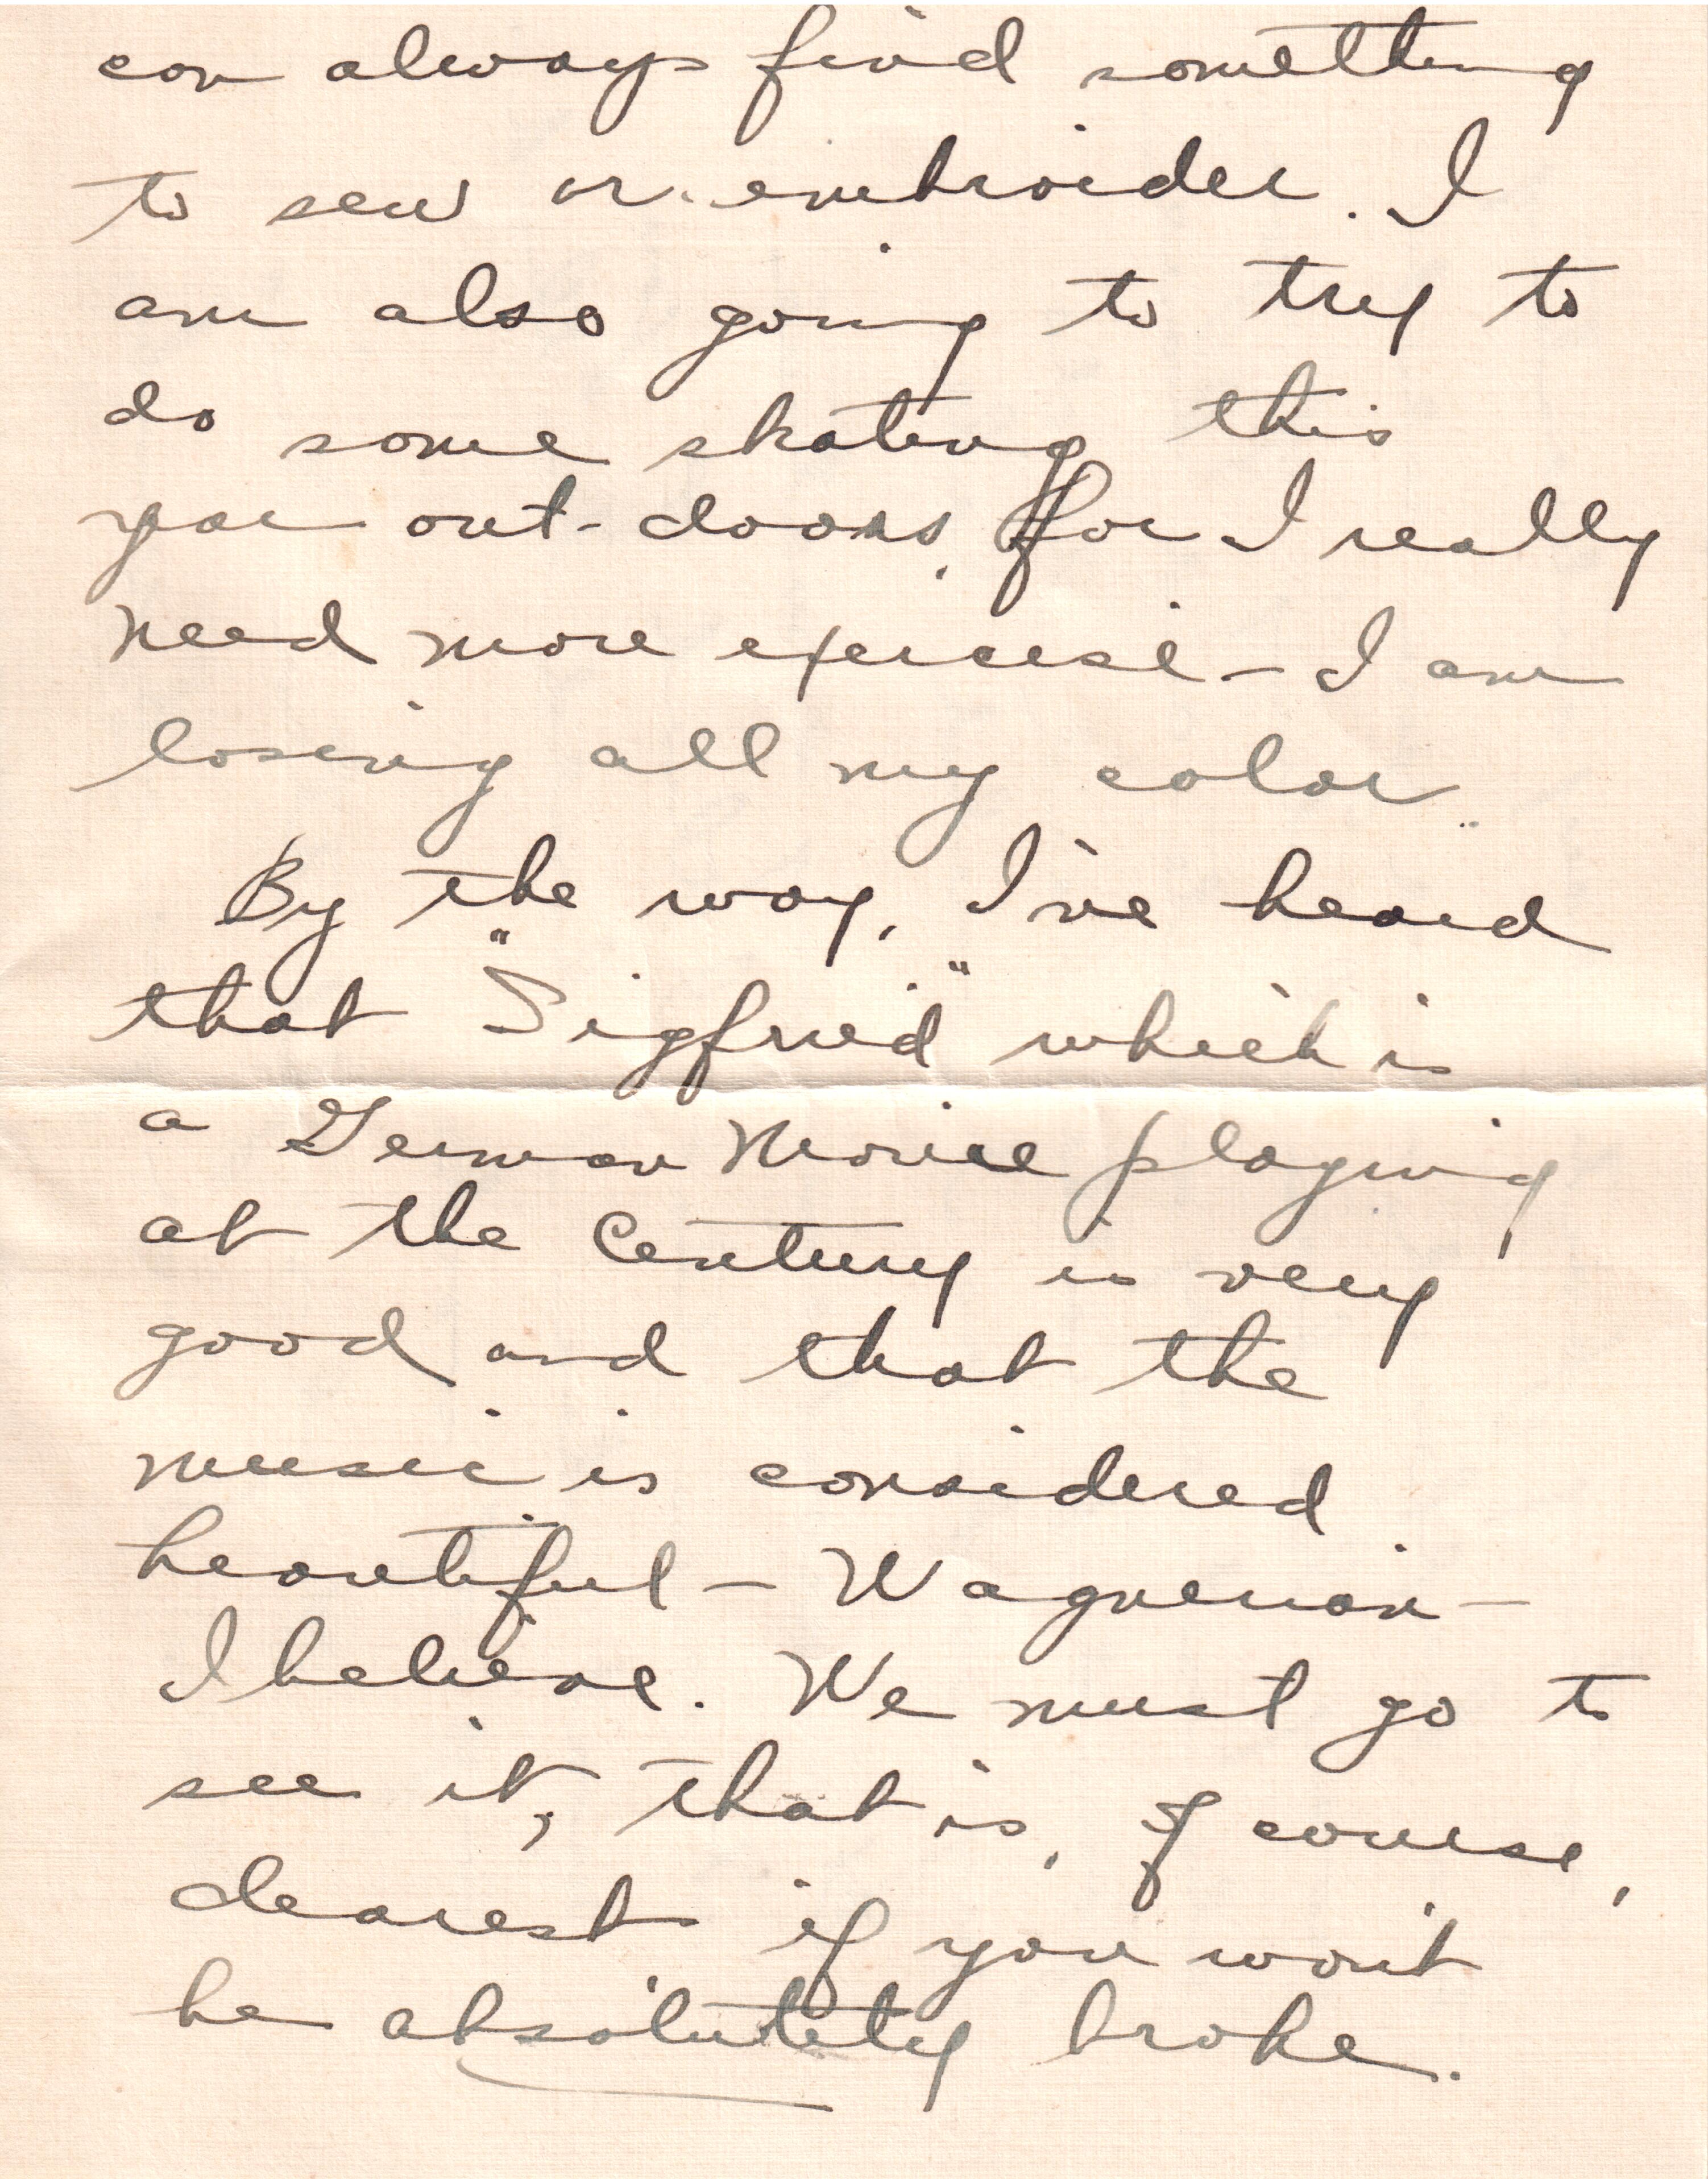 can always find something
to sew or embroider. I
am also going to try to
do some skating this
year out-doors, for I really
need more exercise – I am
losing all my color.
By the way, I've heard
that "Sigfried" which is
a German Movie playing
at the Century is very
good and that the
music is considered
beautiful – Wagnerian –
I believe. We must go to
see it, that is, of course,
dearest if you won't
be absolutely broke.